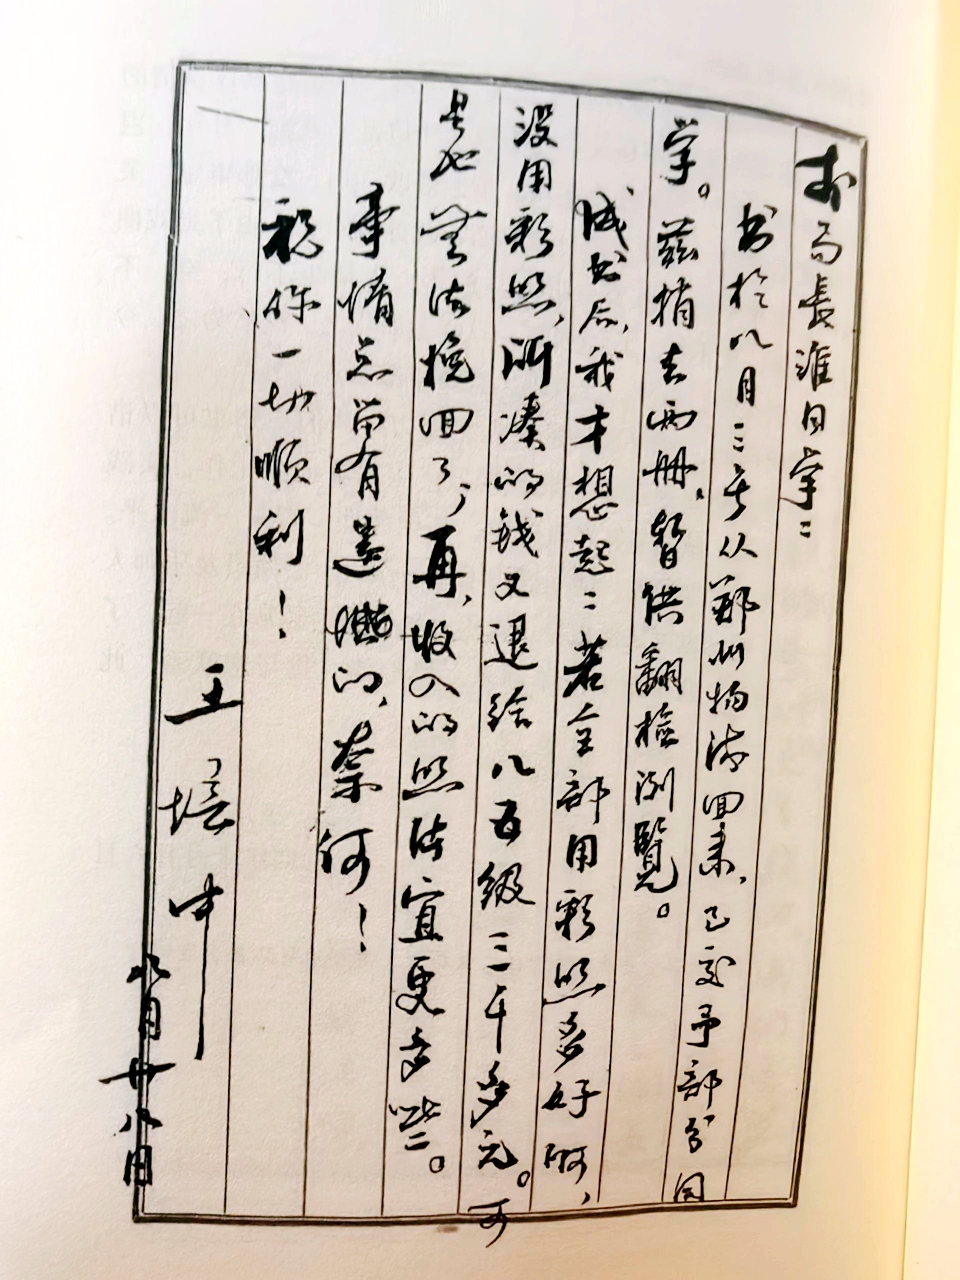 局長淮同学：
书於八月二号从郑州物流回来，已交予部分同
学。兹捎去两册，暂供翻检浏覧。
成书后，我才想起：若全部用彩照多好啊，
没用彩照，所凑的钱又退给八五级三千多元。可
是已無法挽回了；再，收入的照宜更多些。
事情总有遗憾的，奈何！
祝你一切顺利！
王培中
八月廿八日